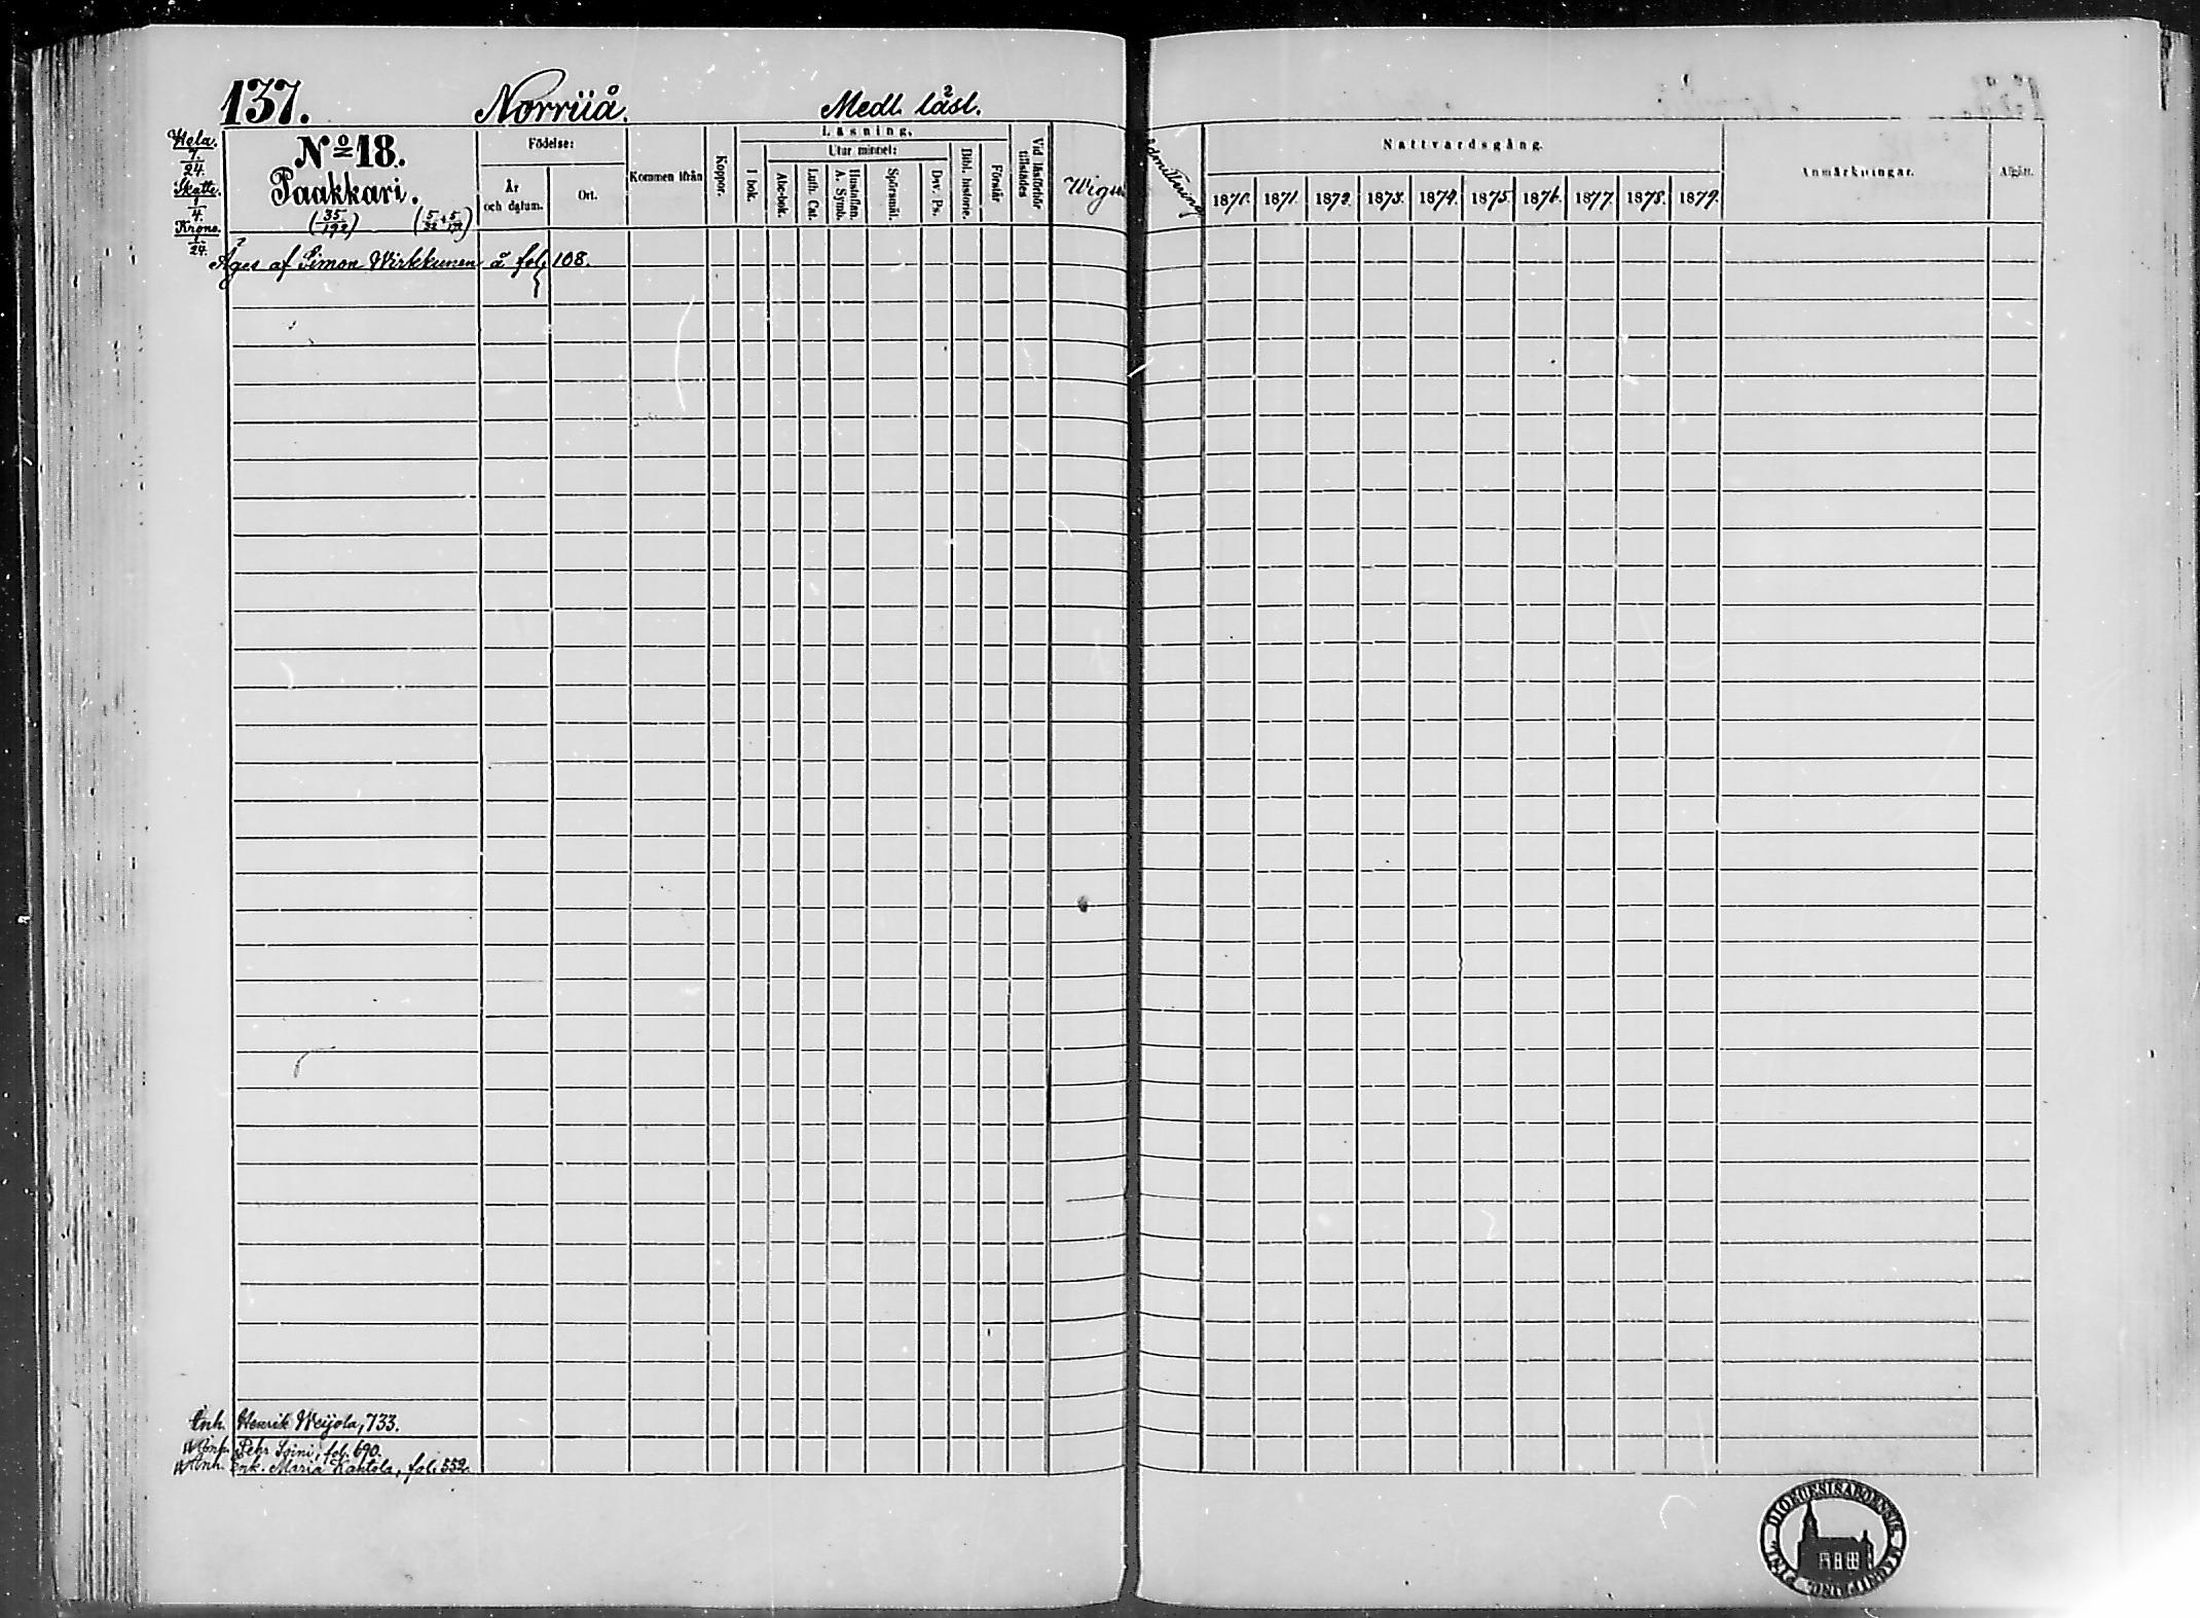 137. Norriiå. Medl. 2 låsl.
Hela.
7/24.
Skatte.
1/4.
Krono.
1/24.
No 18.
Paakkari.
(35/192) (5/32 + 5/192)
Födelse:
År och datum.
Ort.
Kommen ifrån
Koppor.
Läsning.
I bok.
Utur minnet:
Abc-bok.
Luth. Cat.
Hustaflan. A. Symb.
Spörsmål.
Dav. Ps.
Bibl. historie.
Förstår
Vid läsförhör tillstädes
Admittering
Nattvardsgång.
1870. 1871. 1872. 1873. 1874. 1875. 1876. 1877. 1878. 1879.
Anmärkningar.
Afgått.
Äges af Simon Wirkkunen å fol. 108.
Inh. Henrik Weijola, 733.
Pehr Soini, fol. 690.
Inh. Enk. Maria Kantola, fol. 552.
DIOECESIS ABOENSIS